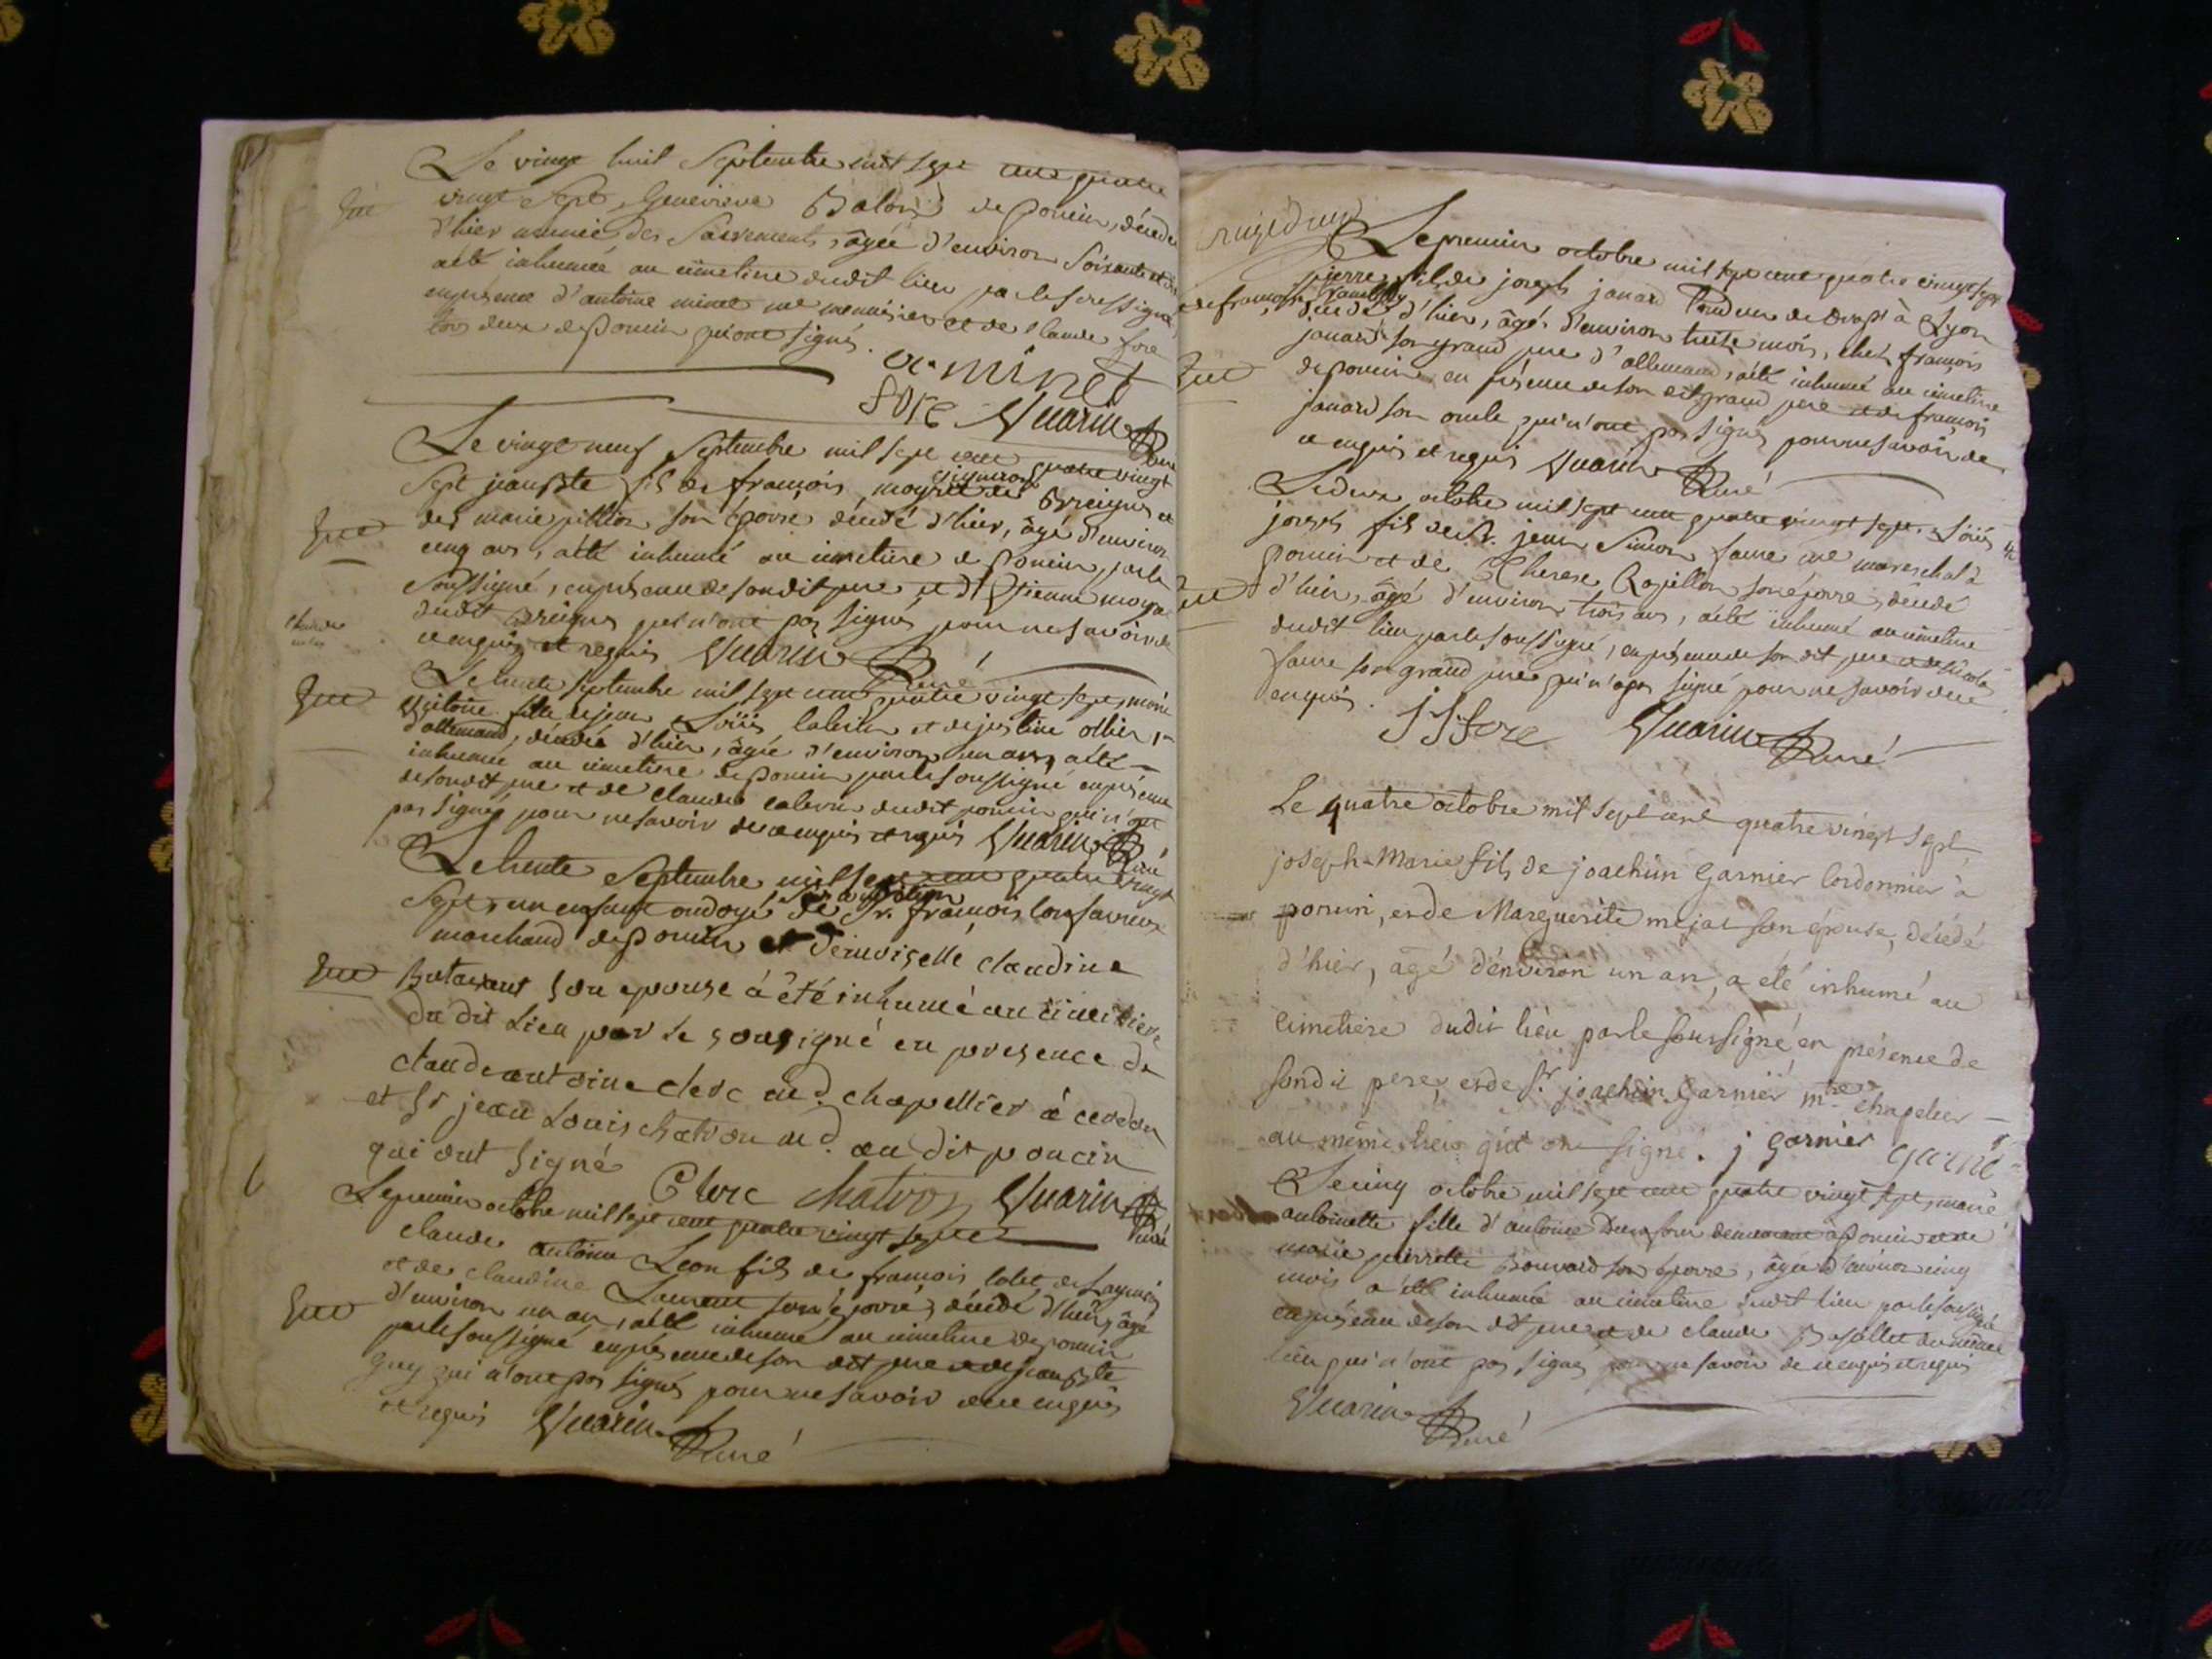 Le vingt huit Septembre mil sept cent quatre
vingt Sept, Genevieve Balon de poncin, décedée
d'hier munie des Sacrements, âgée d'environ Soixante et
a été inhumée au cimetiere dudit lieu par le soussigné
en présence d'antoine minet me menuisier et de Claude fore
tous deux de poncin qui ont signés.
a. minet
fore Guarin Curé
Le vingt neuf Septembre mil sept cent quatre vingt
Sept jean Bte fils de françois vigneron de Breignes et
de marie pillion son épouse décedé d'hier, âgé d'environ
cinq ans, a été inhumé au cimetiere de poncin, par le
Soussigné, en présence de son dit pere et d'Etienne
dudit Breignes qui n'ont pas signés pour ne savoir de
ce enquis et requis Guarin Curé
Le trente Septembre mil sept cent quatre vingt sept, marie
fille de jean Loüis et de justine
d'allemand, décedée d'hier, âgée d'environ un an, a été
inhumée au cimetiere de poncin par le soussigné en présence
de son dit pere et de Claude dudit poncin qui n'ont
pas signés pour ne savoir de ce enquis et requis Guarin Curé
Le trente Septembre mil sept cent quatre vingt
Sept, un enfant ondoyé de Sr. françois
marchand de poncin et demoiselle claudine
son epouse à été inhumé au cimetiere
du dit Lieu par le sousigné en presence de
claude antoine clerc md. chapellier à cerdon
et Sr jean Louis chatron md. au dit poncin
qui ont signé Clerc chatron Guarin Curé
Le premier octobre mil sept cent quatre vingt sept
claude antoine Leon fils de françois
et de claudine Laurent son épouse, décedé d'hier, âgé
d'environ un an, a été inhumé au cimetiere de poncin
par le soussigné en présence de son dit pere et de jean Bte
Guy qui n'ont pas signés pour ne savoir de ce enquis
et requis Guarin Curé
Le premier octobre mil sept cent quatre vingt sept
pierre fils de joseph janard Tondeur de Drap à Lyon
décedé d'hier, âgé d'environ treize mois, chez françois
janard son grand pere d'allemand, a été inhumé au cimetiere
de poncin en présence de son dit grand pere et de françois
janard son oncle qui n'ont pas signés pour ne savoir de
ce enquis et requis Guarin Curé
Le deux octobre mil sept cent quatre vingt sept, Loüis
joseph fils de Sr. jean Simon faure me mareschal à
poncin et de Therese Rapillon son épouse, décedé
d'hier, âgé d'environ trois ans, a été inhumé au cimetiere
dudit lieu par le soussigné, en présence de son dit pere et de nicolas
faure son grand pere qui n'a pas signé pour ne savoir de ce
enquis.
J S fore Guarin Curé
Le quatre octobre mil sept cent quatre vingt sept
joseph-Marie fils de joachim Garnier Cordonnier à
poncin, et de Marguerite mejat son épouse, décédé
d'hier, âgé d'environ un an, a été inhumé au
cimetiere dudit lieu par le soussigné en présence de
sondit pere, et de Sr joachim Garnier mtre chapelier
au même lieu qui ont signé. j garnier
Le cinq octobre mil sept cent quatre vingt sept, marie
antoinette fille d'antoine demeurant à poncin et de
marie pierrette Bouvard son épouse, âgée d'environ cinq
mois a été inhumée au cimetiere dudit lieu par le soussigné
en présence de son dit pere et de claude du même
lieu qui n'ont pas signés pour ne savoir de ce enquis et requis
Guarin Curé